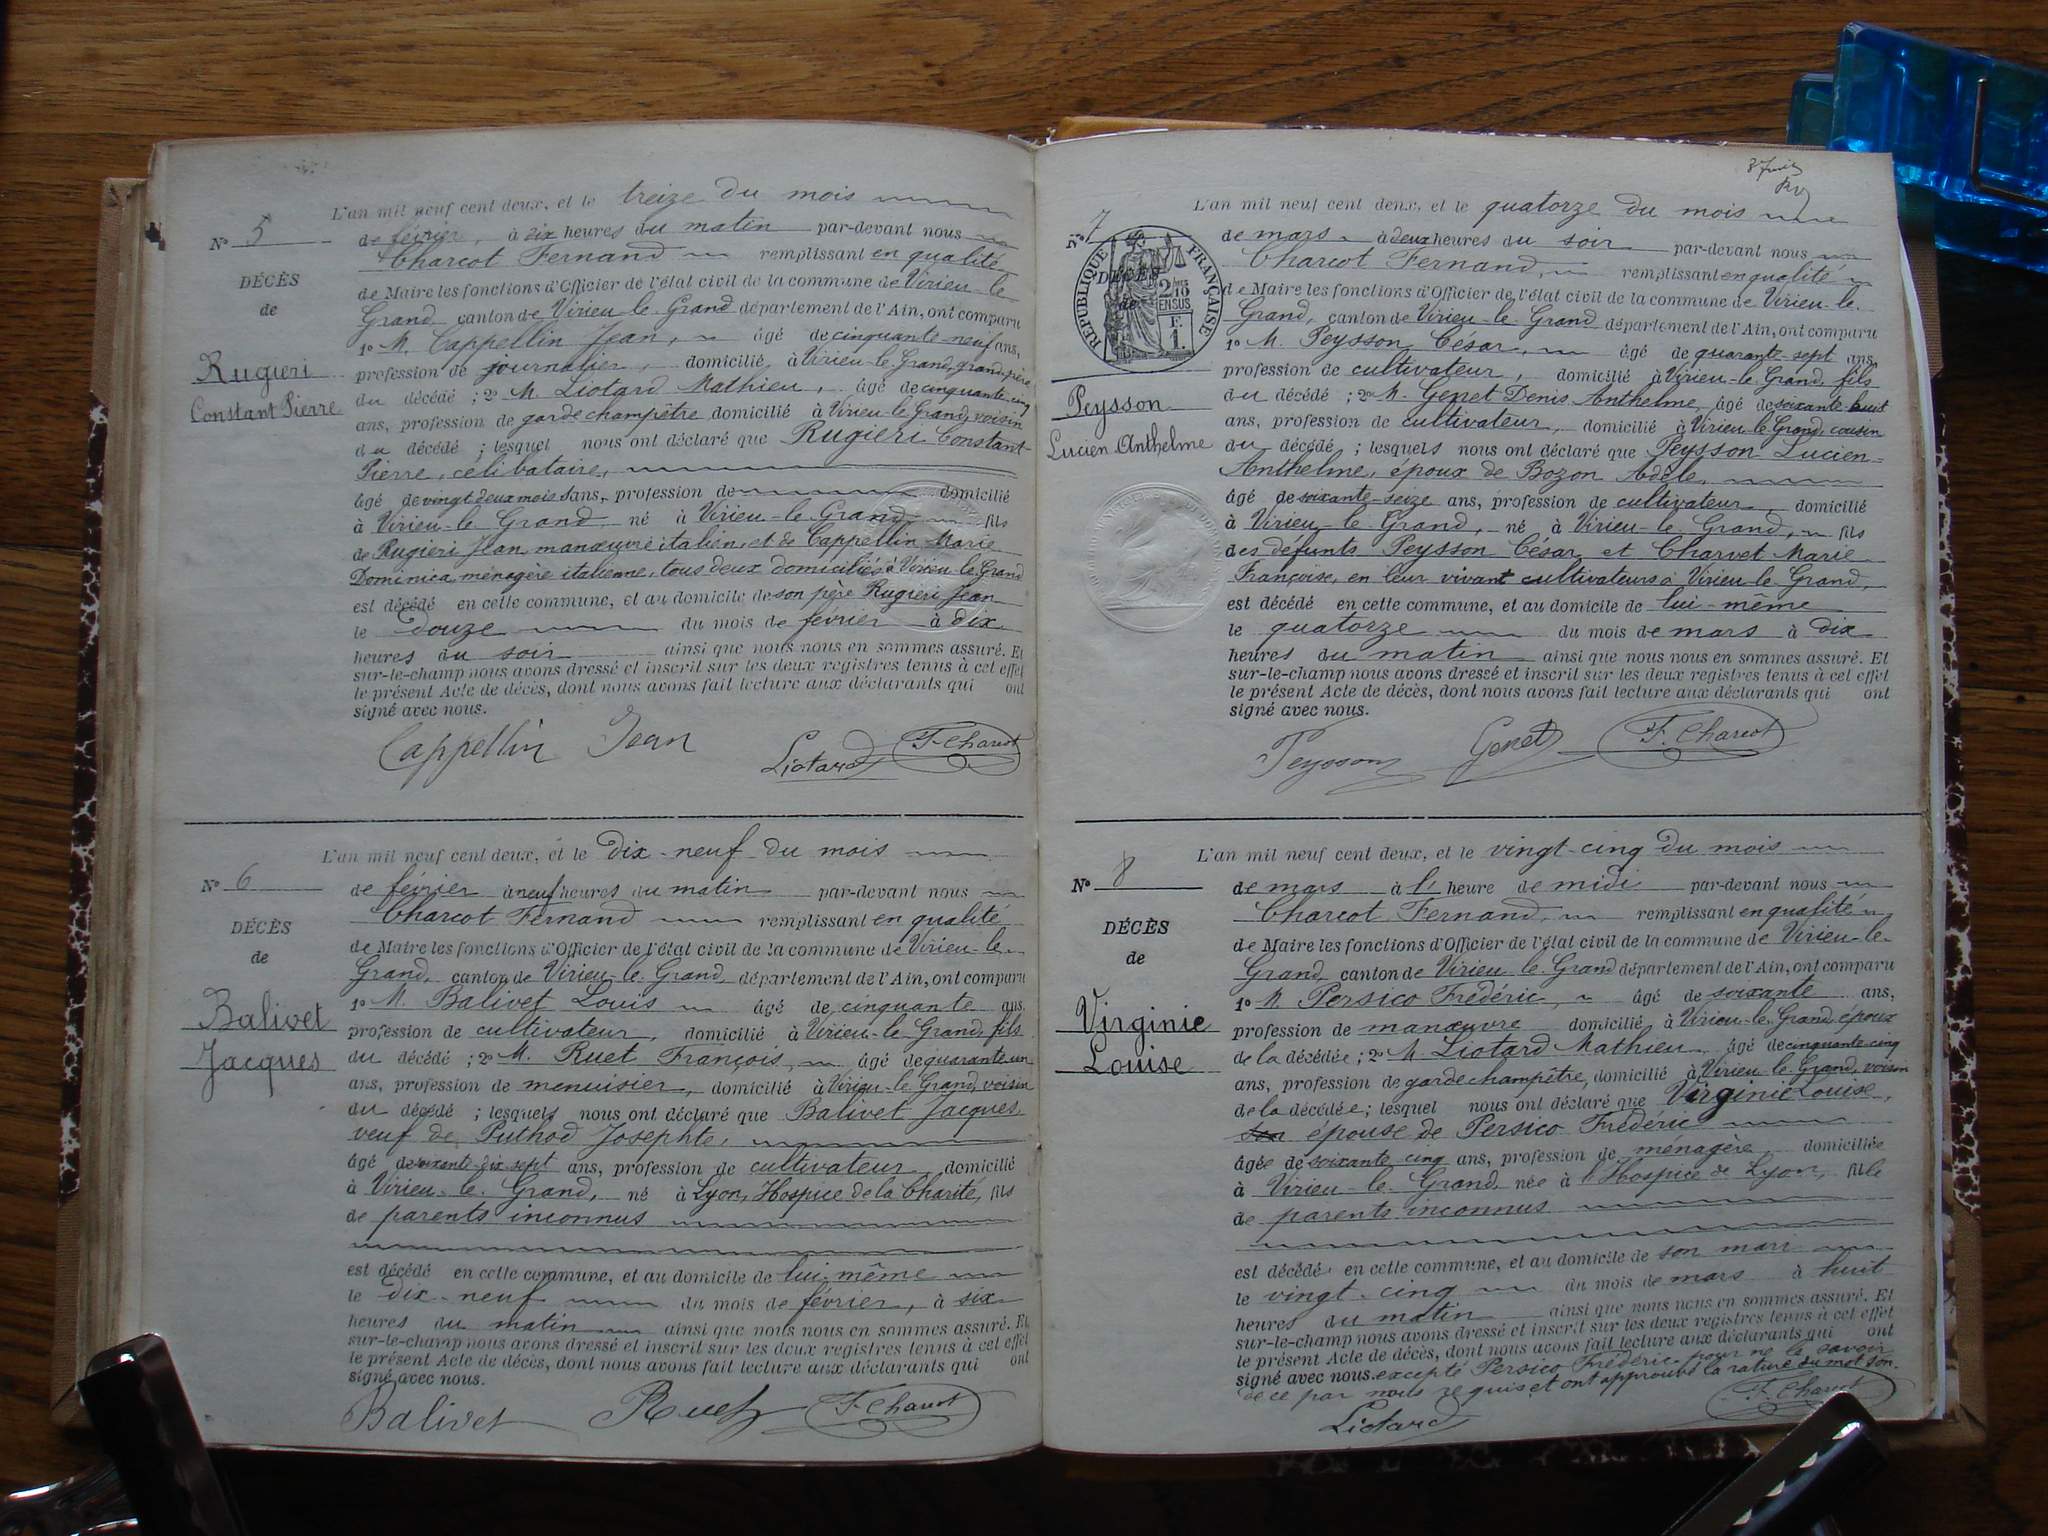 L'an mil neuf cent deux, et le treize du mois
N° 5
de février, à dix heures du matin par-devant nous
Charcot Fernand remplissant en qualité
DÉCÈS
de Maire les fonctions d'Officier de l'état civil de la commune de Virieu-le-
de
Grand canton de Virieu-le-Grand département de l'Ain, ont comparu
1° M. Cappellin Jean, âgé de cinquante-neuf ans,
Rugieri
profession de journalier, domicilié à Virieu-le-Grand, grand-père
Constant Pierre
du décédé ; 2° M. Liotard Mathieu, âgé de cinquante-cinq
ans, profession de garde champêtre domicilié à Virieu-le-Grand, voisin
du décédé ; lesquel nous ont déclaré que Rugieri Constant-
Pierre, célibataire,
âgé de vingt deux mois ans, profession de domicilié
à Virieu-le-Grand né à Virieu-le-Grand, fils
de Rugieri Jean, manœuvre italien, et de Cappellin Marie
Dominica, ménagère italienne, tous deux domiciliés à Virieu-le-Grand
est décédé en cette commune, et au domicile de son père Rugieri Jean
le douze du mois de février à dix
heures du soir ainsi que nous nous en sommes assuré. Et
sur-le-champ nous avons dressé et inscrit sur les deux registres tenus à cet effet
le présent Acte de décès, dont nous avons fait lecture aux déclarants qui ont
signé avec nous.
Cappellin Jean
Liotard
F. Charcot
L'an mil neuf cent deux, et le dix-neuf du mois
N° 6
de février à neuf heures du matin par-devant nous
Charcot Fernand remplissant en qualité
DÉCÈS
de Maire les fonctions d'Officier de l'état civil de la commune de Virieu-le-
de
Grand, canton de Virieu-le-Grand, département de l'Ain, ont comparu
1° M. Balivet Louis âgé de cinquante ans,
Balivet
profession de cultivateur, domicilié à Virieu-le-Grand, fils
Jacques
du décédé ; 2° M. Ruet François, âgé de quarante-un
ans, profession de menuisier, domicilié à Virieu-le-Grand, voisin
du décédé ; lesquels nous ont déclaré que Balivet Jacques,
veuf de Puthod Josephte,
âgé de soixante-dix-sept ans, profession de cultivateur domicilié
à Virieu-le-Grand, né à Lyon, Hospice de la Charité, fils
de parents inconnus
est décédé en cette commune, et au domicile de lui-même
le dix-neuf du mois de février, à six
heures du matin ainsi que nous nous en sommes assuré. Et
sur-le-champ nous avons dressé et inscrit sur les deux registres tenus à cet effet
le présent Acte de décès, dont nous avons fait lecture aux déclarants qui ont
signé avec nous.
Balivet Ruet F. Charcot
L'an mil neuf cent deux, et le quatorze du mois
N° 7
de mars à deux heures du soir par-devant nous
Charcot Fernand, remplissant en qualité
RÉPUBLIQUE FRANÇAISE
2/10 EN SUS
F. 1.
DÉCÈS
de
de Maire les fonctions d'Officier de l'état civil de la commune de Virieu-le-
Grand, canton de Virieu-le-Grand département de l'Ain, ont comparu
1° M. Peysson César, âgé de quarante-sept ans,
profession de cultivateur, domicilié à Virieu-le-Grand, fils
Peysson
du décédé ; 2° M. Genet Denis Anthelme, âgé de soixante-huit
ans, profession de cultivateur, domicilié à Virieu-le-Grand, cousin
Lucien Anthelme
du décédé ; lesquels nous ont déclaré que Peysson Lucien-
Anthelme, époux de Bozon Adèle,
âgé de soixante-seize ans, profession de cultivateur domicilié
à Virieu-le-Grand, né à Virieu-le-Grand, fils
des défunts Peysson César et Charvet Marie
Françoise, en leur vivant cultivateurs à Virieu-le-Grand,
est décédé en cette commune, et au domicile de lui-même
le quatorze du mois de mars à dix
heures du matin ainsi que nous nous en sommes assuré. Et
sur-le-champ nous avons dressé et inscrit sur les deux registres tenus à cet effet
le présent Acte de décès, dont nous avons fait lecture aux déclarants qui ont
signé avec nous.
Peysson Genet F. Charcot
L'an mil neuf cent deux, et le vingt-cinq du mois
N° 8
de mars à l' heure de midi par-devant nous
Charcot Fernand, remplissant en qualité
DÉCÈS
de Maire les fonctions d'Officier de l'état civil de la commune de Virieu-le-
de
Grand canton de Virieu-le-Grand département de l'Ain, ont comparu
1° M. Persico Frédéric, âgé de soixante ans,
Virginie
profession de manœuvre domicilié à Virieu-le-Grand, époux
Louise
de la décédée ; 2° M. Liotard Mathieu, âgé de cinquante-cinq
ans, profession de garde champêtre, domicilié à Virieu-le-Grand, voisin
de la décédée ; lesquel nous ont déclaré que Virginie Louise,
son épouse de Persico Frédéric
âgée de soixante cinq ans, profession de ménagère domiciliée
à Virieu-le-Grand née à l'Hospice de Lyon, fille
de parents inconnus
est décédé en cette commune, et au domicile de son mari
le vingt-cinq du mois de mars à huit
heures du matin ainsi que nous nous en sommes assuré. Et
sur-le-champ nous avons dressé et inscrit sur les deux registres tenus à cet effet
le présent Acte de décès, dont nous avons fait lecture aux déclarants qui ont
signé avec nous. excepté Persico Frédéric pour ne le savoir
de ce par nous requis, et ont approuvé la rature du mot son.
Liotard F. Charcot